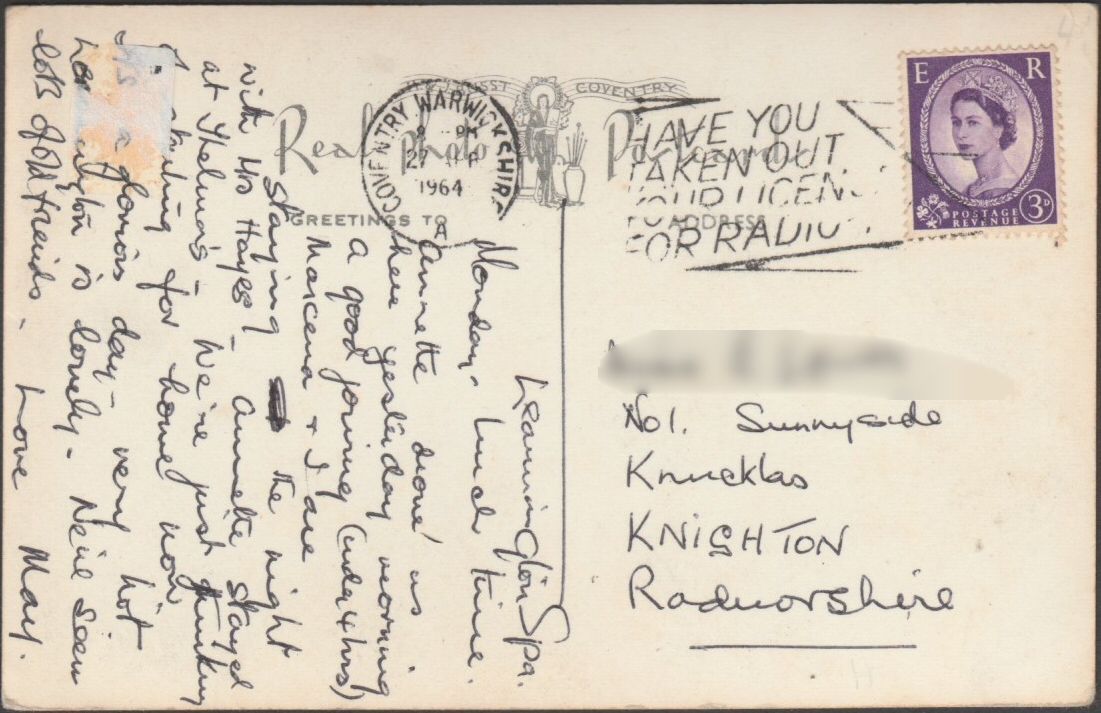 Leamington Spa.
Monday - Lunch time.
Annette drove us
here yesterday morning
A good journey (under 4 hrs)
Marcena & I are
Staying the night
with Mrs Hayes - Annette stayed
at Thelma's - We're just thinking
starting for home now
a glorious day - very hot
is lovely - Neil seen
lots of old friends -
Love Mary.
COVENTRY
Real Photo
GREETINGS TO
ADDRESS
COVENTRY WARWICKSHIRE
8 PM
27
1964
A
HAVE YOU
TAKEN OUT
YOUR LICENCE
FOR RADIO
E R
POSTAGE
REVENUE
3D
No1. Sunnyside
Knucklas
KNIGHTON
Radnorshire